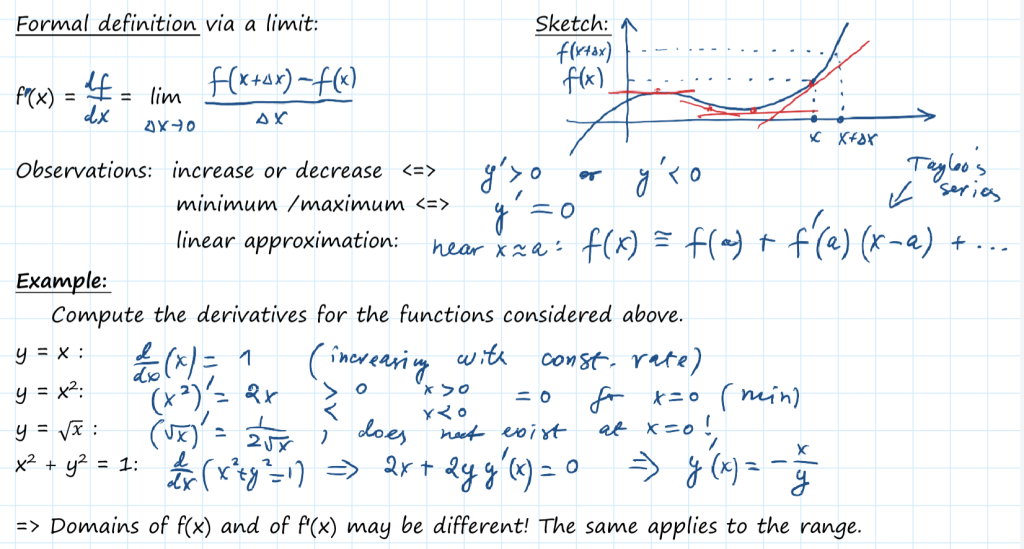 Formal definition via a limit:
Sketch:
f(x+Δx)
f(x)
f'(x) = df/dx = lim Δx→0 (f(x+Δx) − f(x))/Δx
x x+Δx
Observations: increase or decrease <=> y' > 0 or y' < 0
Taylor's series
minimum /maximum <=> y' = 0
linear approximation: near x ≈ a: f(x) ≅ f(a) + f'(a) (x−a) + ...
Example:
Compute the derivatives for the functions considered above.
y = x : d/dx (x) = 1 (increasing with const. rate)
y = x²: (x²)' = 2x > 0 x > 0 < x < 0 = 0 for x = 0 (min)
y = √x : (√x)' = 1/(2√x) , does not exist at x = 0 !
x² + y² = 1: d/dx (x² + y² = 1) => 2x + 2y y'(x) = 0 => y'(x) = − x/y
=> Domains of f(x) and of f'(x) may be different! The same applies to the range.